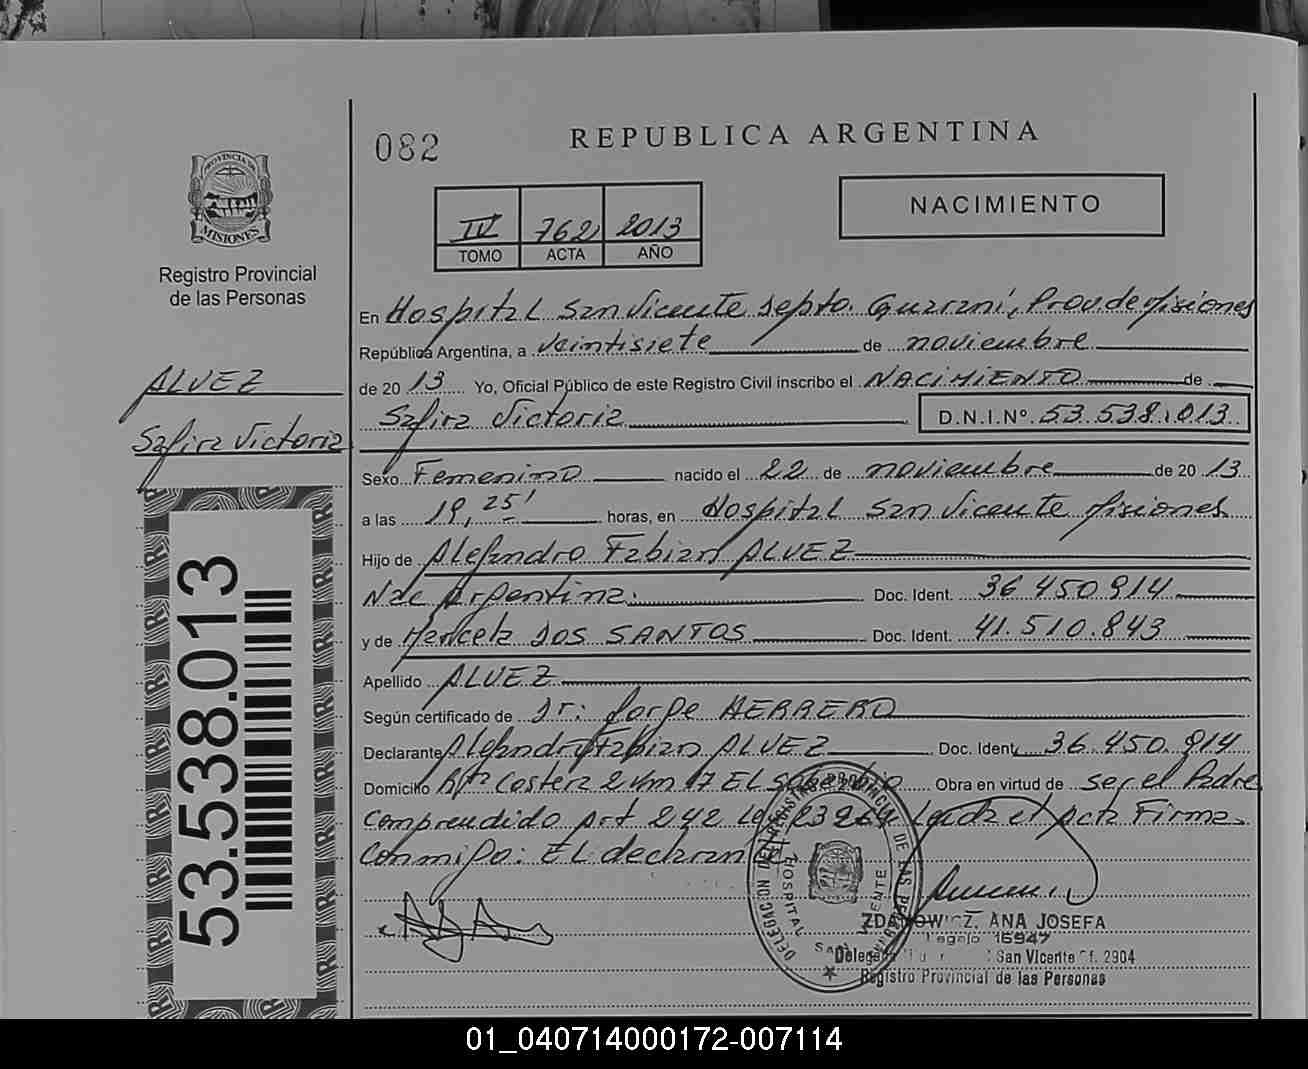 082
REPUBLICA ARGENTINA
PROVINCIA DE
MISIONES
Registro Provincial
de las Personas
IV 762 2013
TOMO ACTA AÑO
NACIMIENTO
En Hospital San Vicente Depto. Guaraní, Prov. de Misiones
República Argentina, a veintisiete de noviembre
de 20 13 Yo, Oficial Público de este Registro Civil inscribo el NACIMIENTO de
Safira Victoria D.N.I.Nº. 53.538.013
ALVEZ
Safira Victoria
Sexo Femenino nacido el 22 de noviembre de 20 13
a las 19,25' horas, en Hospital San Vicente Misiones
Hijo de Alejandro Fabian ALVEZ
Nac Argentina. Doc. Ident. 36.450.914
y de Maricela DOS SANTOS Doc. Ident. 41.510.843
Apellido ALVEZ
Según certificado de Dr: Jorge HERRERO
Declarante Alejandro Fabian ALVEZ Doc. Ident. 36.450.914
Domicilio Rta Costera 2 Km 17 El Soberbio Obra en virtud de ser el Padre
Comprendido Art 242 Ley 23264 Leida el Acta Firma
Conmigo: El declarante
53.538.013
DELEGACION DEL REGISTRO PROVINCIAL DE LAS PERSONAS
HOSPITAL
San Vicente
ZDANOWICZ, ANA JOSEFA
Legajo 16947
San Vicente Of. 2904
Registro Provincial de las Personas
01_040714000172-007114